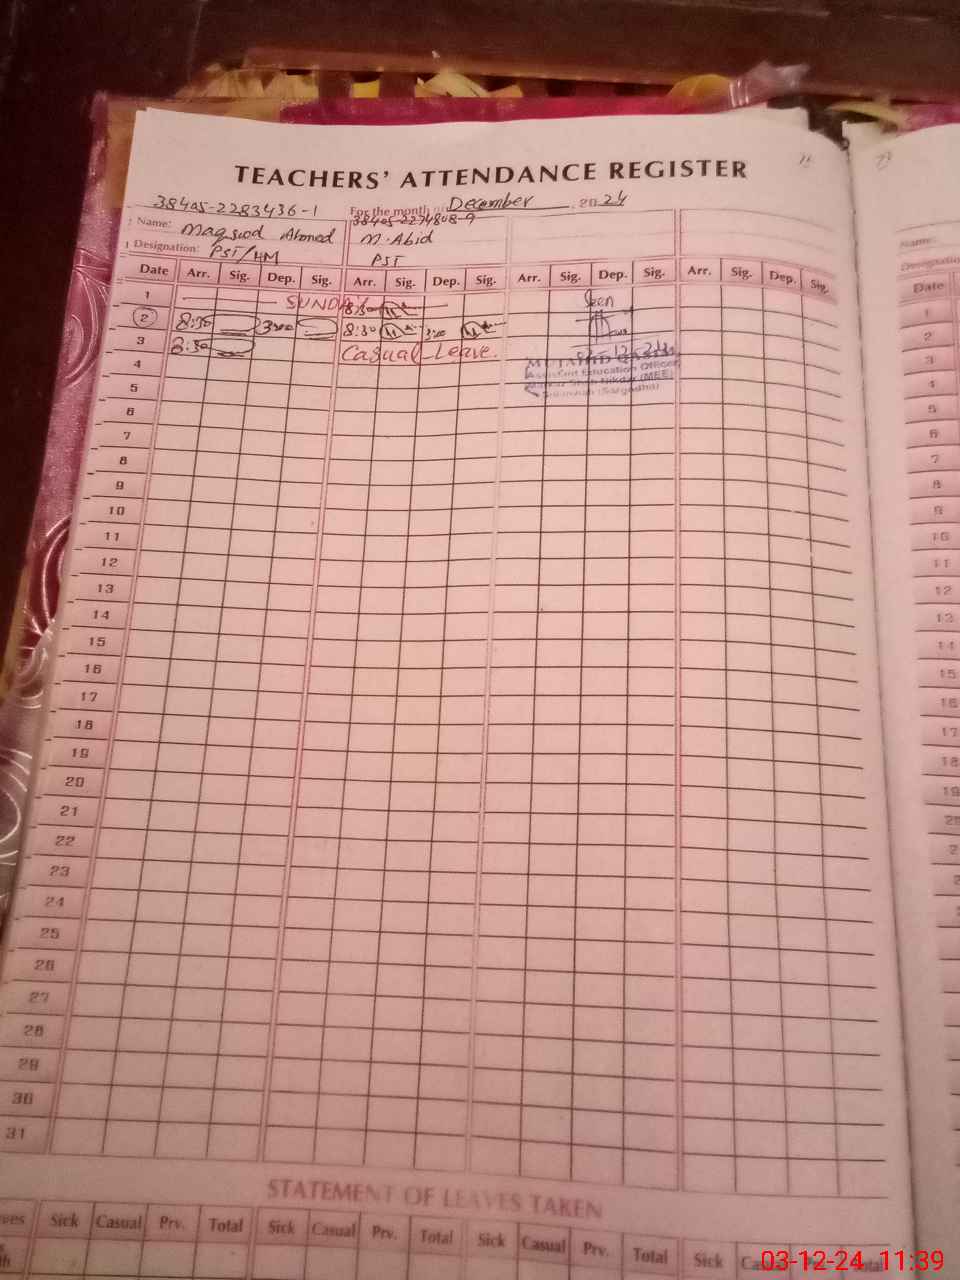 TEACHERS' ATTENDANCE REGISTER
38405-2283436-1 For the month of December, 2024
38405-2274808-9
Name: Maqsood Ahmed M. Abid
Designation: PST/HM PST
Date Arr. Sig. Dep. Sig. Arr. Sig. Dep. Sig. Arr. Sig. Dep. Sig. Arr. Sig. Dep. Sig.
1 SUNDAY 8:30 Seen
2 8:30 3:00 8:30 3:00
3 8:30 Casual Leave.
4
Assistant Education Officer
5 (MEE)
(Sargodha)
6
7
8
9
10
11
12
13
14
15
16
17
18
19
20
21
22
23
24
25
26
27
28
29
30
31
STATEMENT OF LEAVES TAKEN
Sick Casual Prv. Total Sick Casual Prv. Total Sick Casual Prv. Total Sick Total
Name:
Date
1
2
3
4
5
6
7
8
9
10
11
12
13
14
15
16
17
18
19
03-12-24 11:39